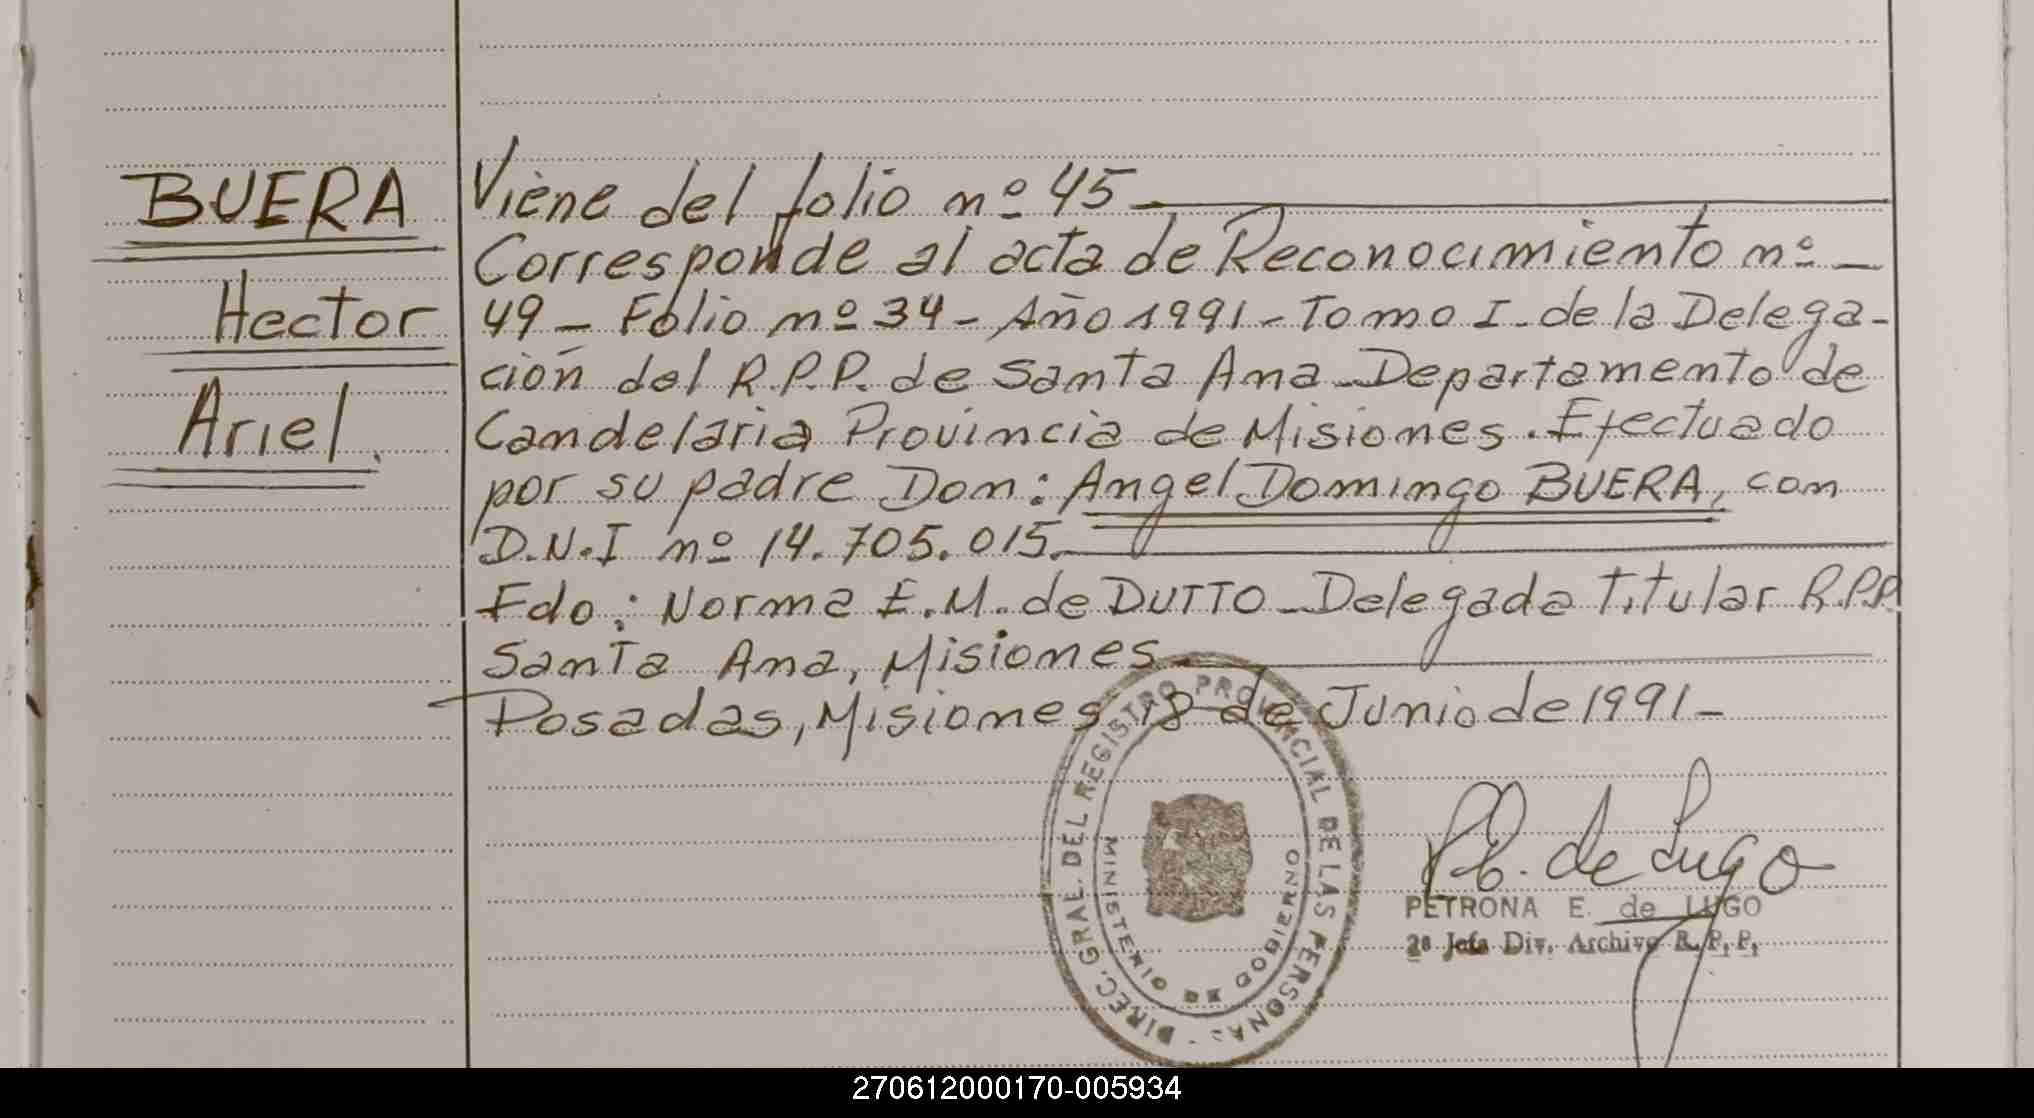 BUERA
Hector
Ariel.
Viene del folio nº 45
Corresponde al acta de Reconocimiento nº _
49 _ Folio nº 34 - Año 1991 - Tomo I - de la Delega-
ción del R.P.P. de Santa Ana - Departamento de
Candelaria Provincia de Misiones. Efectuado
por su padre Don: Angel Domingo BUERA, con
D.N.I nº 14.705.015.
Fdo: Norma E.M. de DUTTO - Delegada Titular R.P.P.
Santa Ana, Misiones.
Posadas, Misiones 18 de Junio de 1991 -
DIREC. GRAL. DEL REGISTRO PROVINCIAL DE LAS PERSONAS
MINISTERIO DE GOBIERNO
P.E. de Lugo
PETRONA E. de LUGO
2ª Jefa Div. Archivo R.P.P.
270612000170-005934